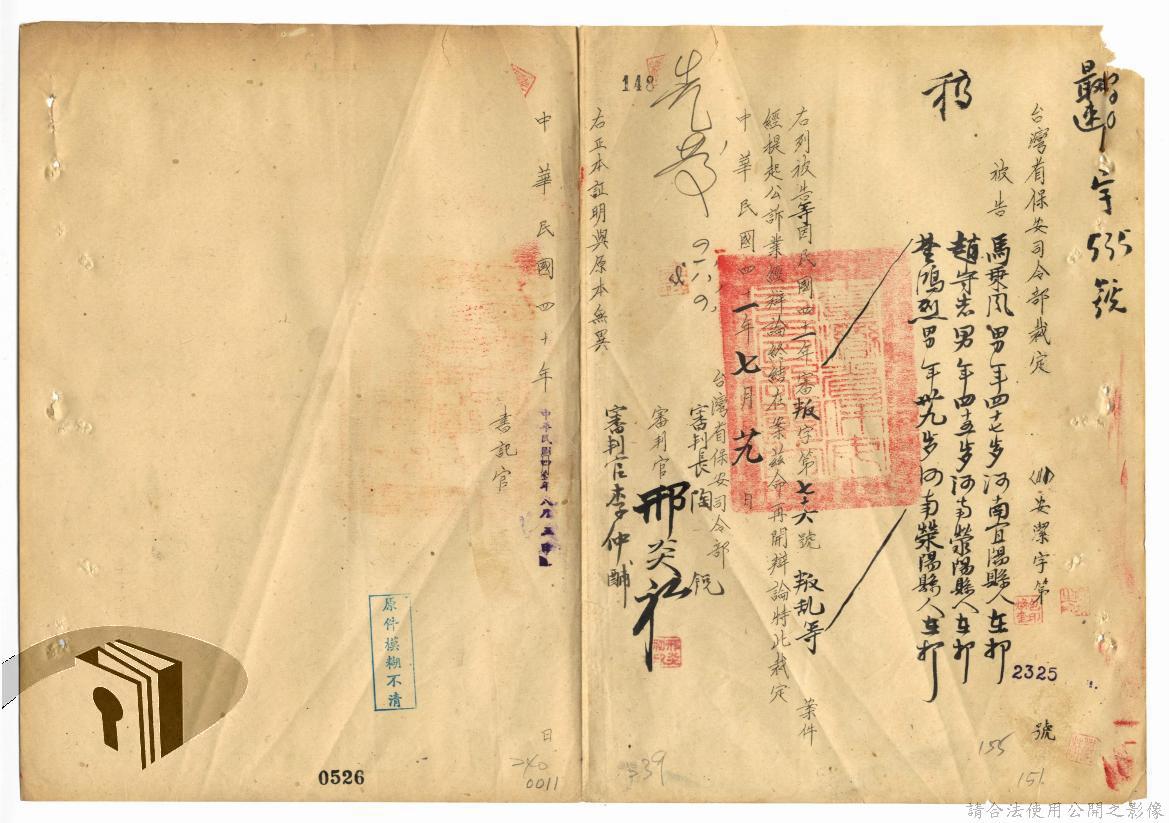 最速件
字535號
台灣省保安司令部裁定
(41)安潔字第2325號
稿
被告
馬乘風男年四十七歲河南宜陽縣人在押
趙守志男年四十五歲河南滎陽縣人在押
楚鴻烈男年卅九歲河南滎陽縣人在押
右列被告等因民國四十一年審叛字第七十六號叛乱等案件
經提起公訴業經辯論終結在案茲命再開辯論特此裁定
中華民國四十一年七月廿九日
台灣省保安司令部
審判長陶
審判官邢炎
審判官李仲酺
148
右正本証明與原本無異
中華民國四十年
日
書記官
原件模糊不清
155
151
239
240
0011
0526
請合法使用公開之影像